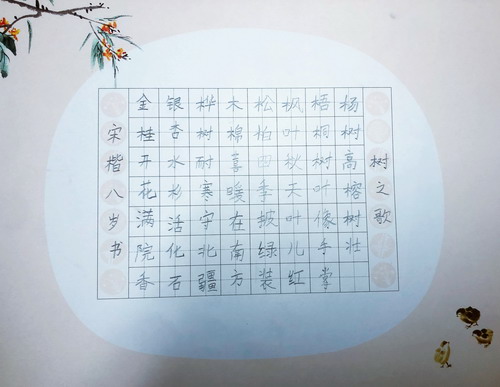 树之歌
杨树高榕树壮
梧桐树叶像手掌
枫叶秋天叶儿红
松柏四季披绿装
木棉喜暖在南方
桦树耐寒守北疆
银杏水杉活化石
金桂开花满院香
宋楷八岁书